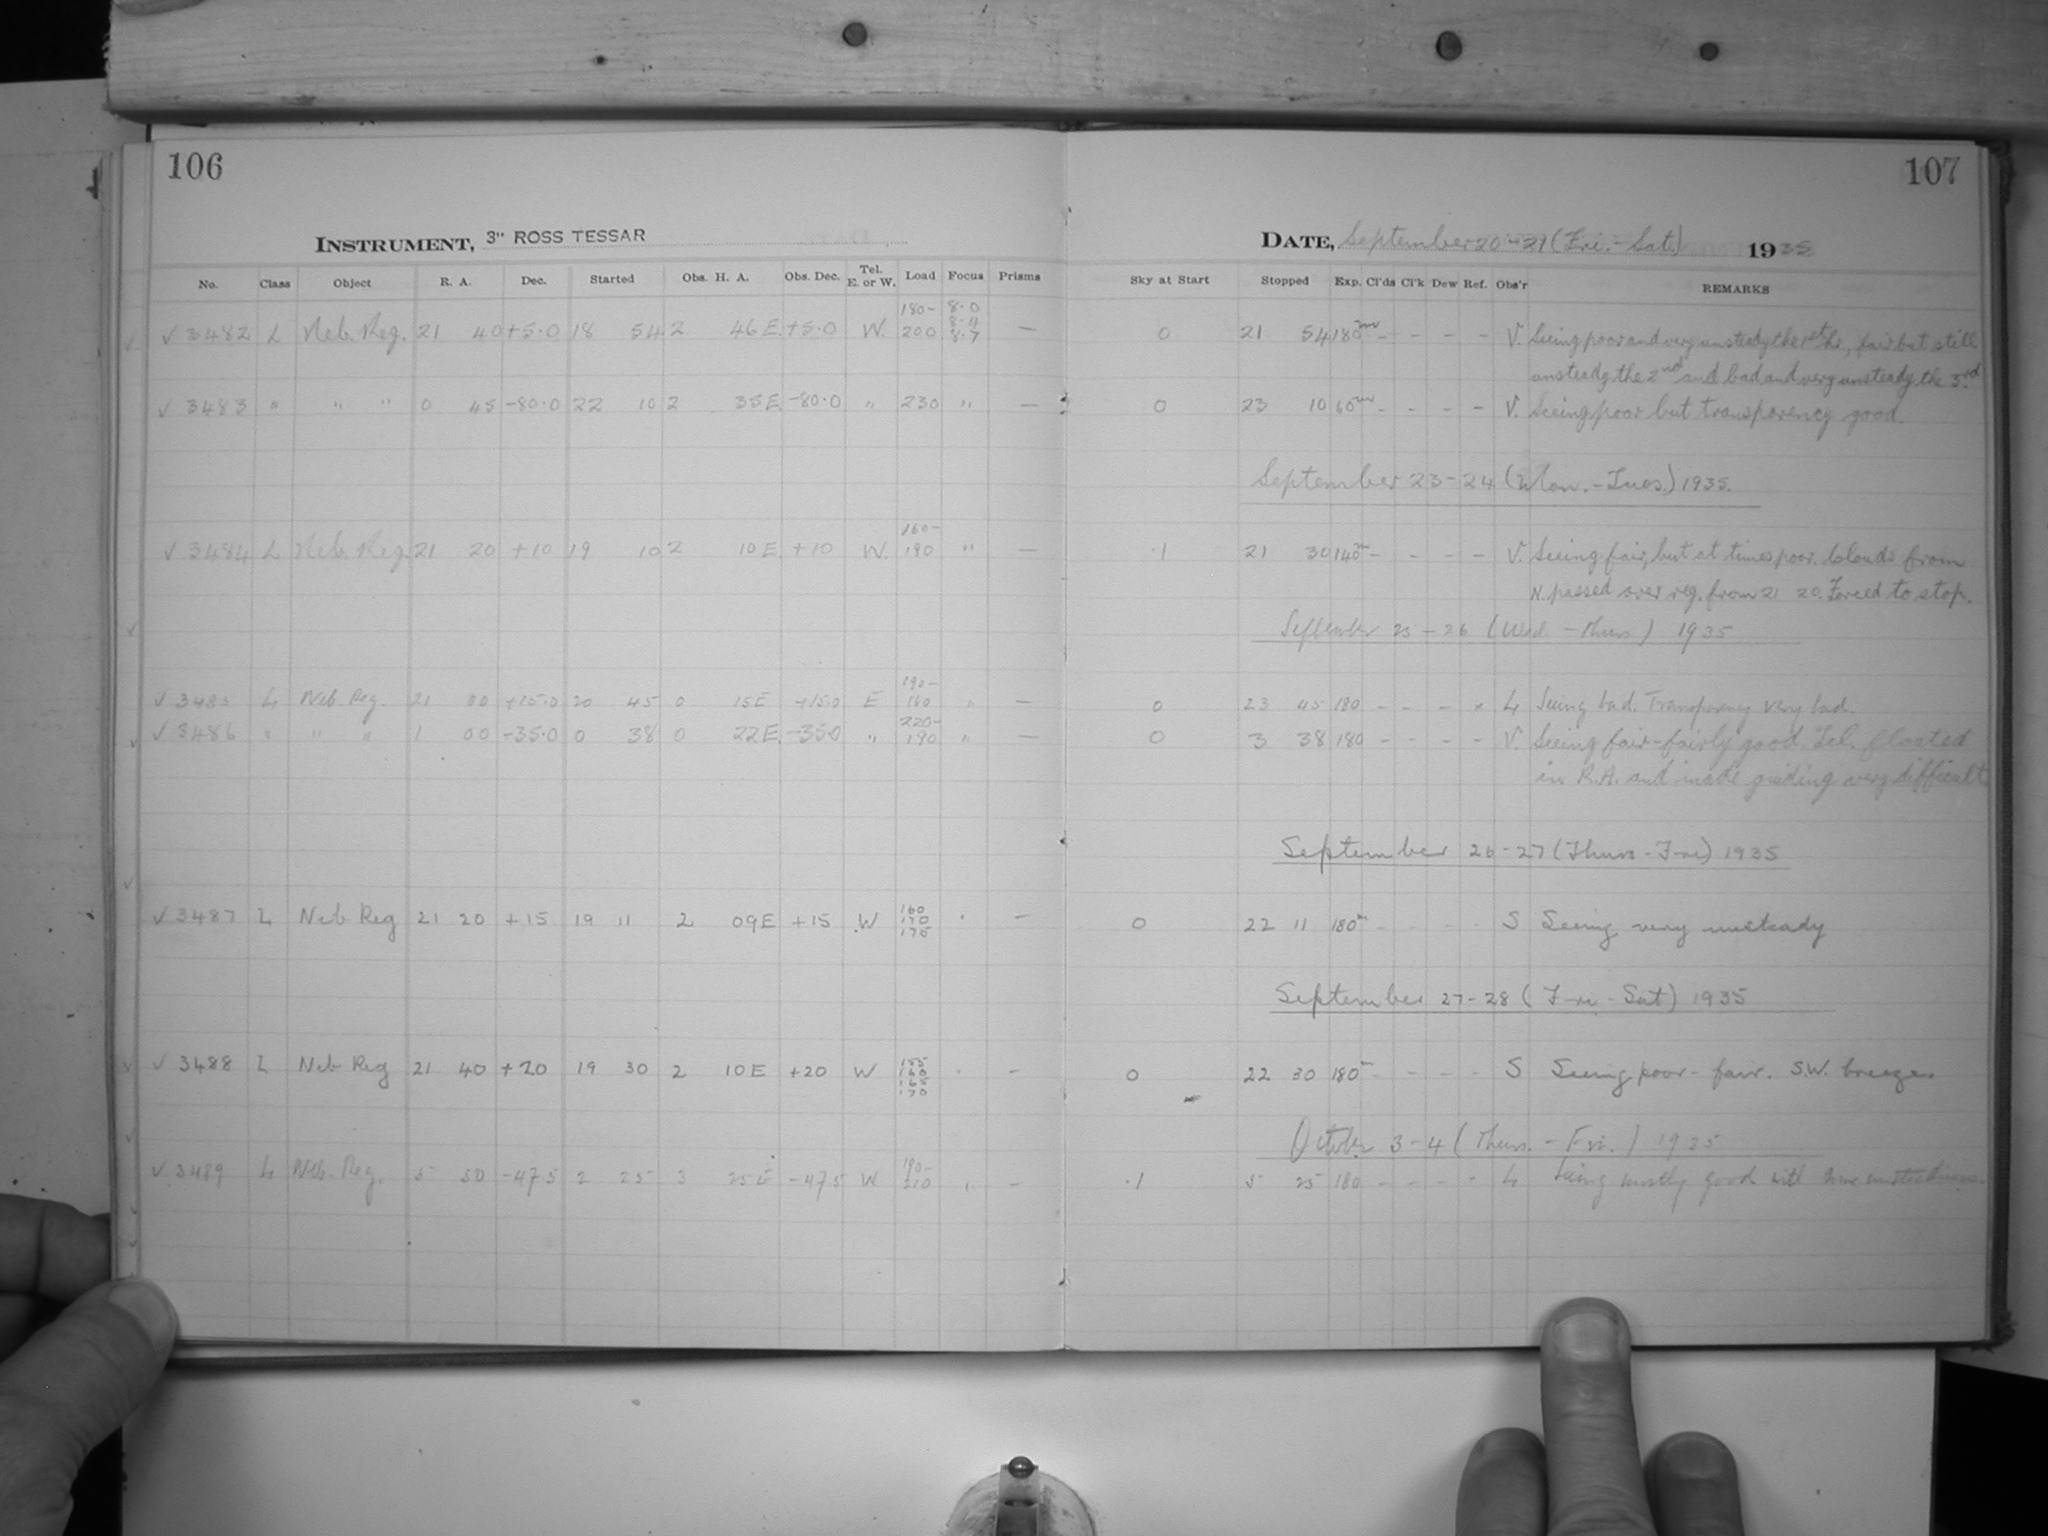 106
107
INSTRUMENT, 3" ROSS TESSAR
DATE, September 20-21 (Fri. - Sat.) 1935
No. Class Object R. A. Dec. Started Obs. H. A. Obs. Dec. Tel. E. or W. Load Focus Prisms Sky at Start Stopped Exp. Cl'ds Cl'k Dew Ref. Obs'r REMARKS
✓ 3482 L Neb. Reg. 21 40 +5.0 18 54 2 46 E. +5.0 W. 180-200 8.0 8.4 8.7 — 0 21 54 180m - - - - V. Seeing poor and very unsteady the 1st hr., fair but still
unsteady the 2nd and bad and very unsteady the 3rd
✓ 3483 " " " 0 45 -80.0 22 10 2 35 E -80.0 " 230 " — 0 23 10 60m - - - - V. Seeing poor but transparency good.
September 23-24 (Mon. - Tues.) 1935.
✓ 3484 L Neb. Reg. 21 20 +10 19 10 2 10 E. +10 W. 160-190 " — .1 21 30 140m - - - - V. Seeing fair, but at times poor. Clouds from
N. passed over reg. from 21 20. Forced to stop.
September 25-26 (Wed. - Thurs) 1935
✓ 3485 L Neb. Reg. 21 00 +15.0 20 45 0 15 E +15.0 E 190-160 " — 0 23 45 180 - - - L Seeing bad. Transparency very bad.
✓ 3486 " " " 1 00 -35.0 0 38 0 22 E. -35.0 " 220-190 " — 0 3 38 180 - - - - V. Seeing fair-fairly good. Tel. floated
in R.A. and made guiding very difficult
September 26-27 (Thurs - Fri) 1935
✓ 3487 L Neb Reg 21 20 +15 19 11 2 09 E +15 W 160 170 175 " — 0 22 11 180m - - - - S Seeing very unsteady
September 27-28 (Fri - Sat) 1935
✓ 3488 L Neb Reg 21 40 +20 19 30 2 10 E +20 W 155 160 165 170 " - 0 22 30 180m - - - - S Seeing poor - fair. S.W. breeze.
October 3-4 (Thurs. - Fri.) 1935
✓ 3489 L Neb. Reg. 5 50 -47.5 2 25 3 25 E -47.5 W 190-210 " — .1 5 25 180 - - - - L Seeing mostly good with some unsteadiness.